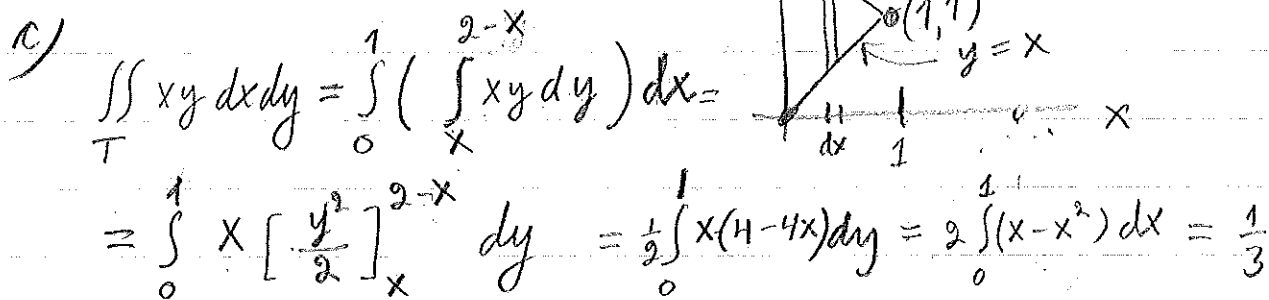 c) ∬_T xy dxdy = ∫_0^1 ( ∫_x^{2-x} xy dy ) dx =
(1,1)
y = x
dx 1 x
= ∫_0^1 x [ y²/2 ]_x^{2-x} dy = 1/2 ∫_0^1 x(4-4x) dy = 2 ∫_0^1 (x-x²) dx = 1/3